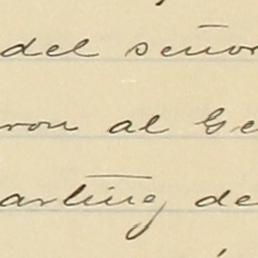 del señor
ron al Ge
arting de